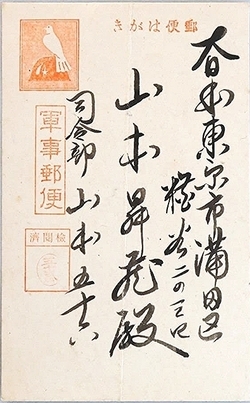 郵便はがき
大日本東京市蒲田区
糀谷二の三〇
山本昇龍殿
軍事郵便
検閲済
司令部 山本五十六